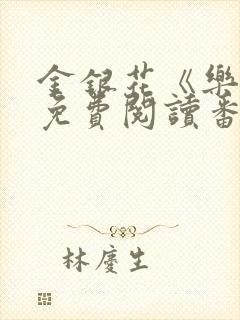 金銀花《樂
免費閱讀番
林慶生